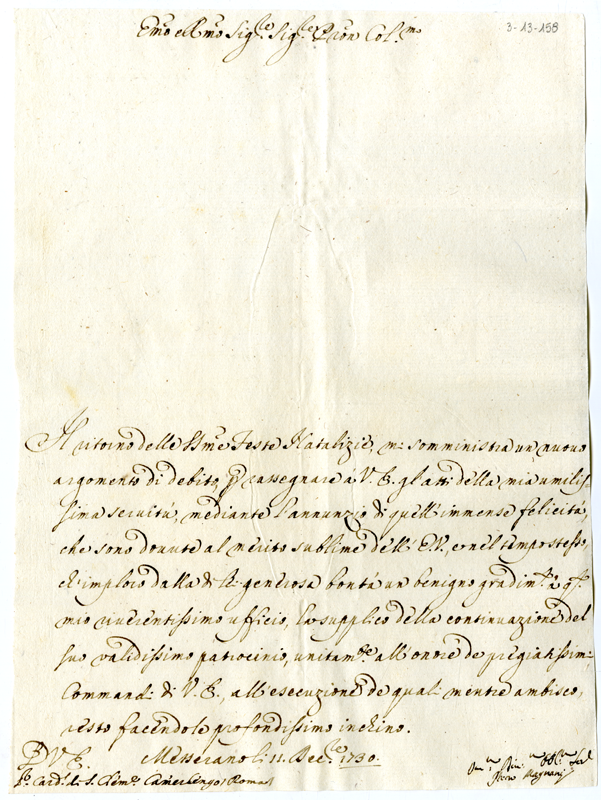 Emo e Rmo Sig.re Sig.re Pron Col.mo
3-13-158
Il ritorno delle SSme Feste Natalizie, mi somministra un nuovo
argomento di debito, p rassegnare à V. E. gl'atti della mia umilis-
sima servitù, mediante l'annunzio di quell'immense felicità,
che sono dovute al merito sublime dell'E.V., e nel tempo stesso,
ch'imploro dalla di lei generosa bontà un benigno gradim.to
mio riverentissimo ufficio, la supplico della continuazione del
suo validissimo patrocinio, unitam.te all'onore de pregiatissimi
Commandi di V. E., all'esecuzione de quali mentre ambisco,
resto facendole profondissimo inchino.
D V E. Messerano li 11. Dec.bre 1730.
Card. di S. Clem.te Camerlengo Roma